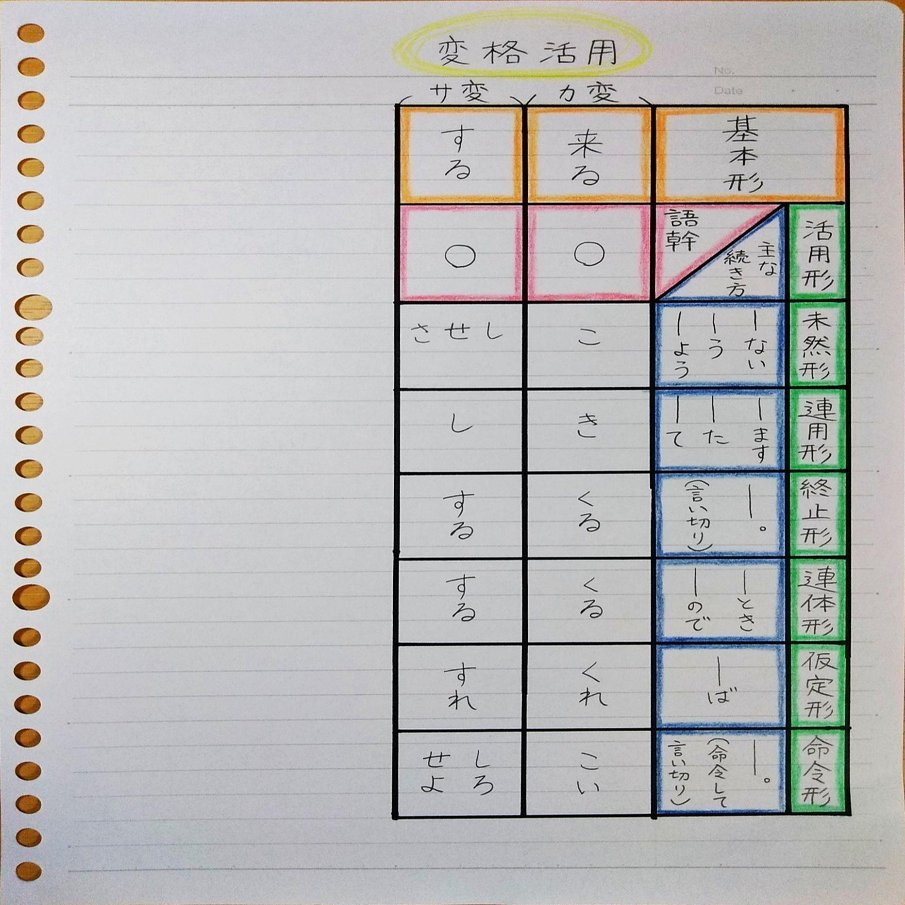 変格活用
No.
Date
サ変 カ変
する 来る 基本形
○ ○ 語幹 主な続き方 活用形
させし こ ーない ーう ーよう 未然形
し き ーます ーた ーて 連用形
する くる ー。(言い切り) 終止形
する くる ーとき ーので 連体形
すれ くれ ーば 仮定形
しろ せよ こい ー。(命令して言い切り) 命令形